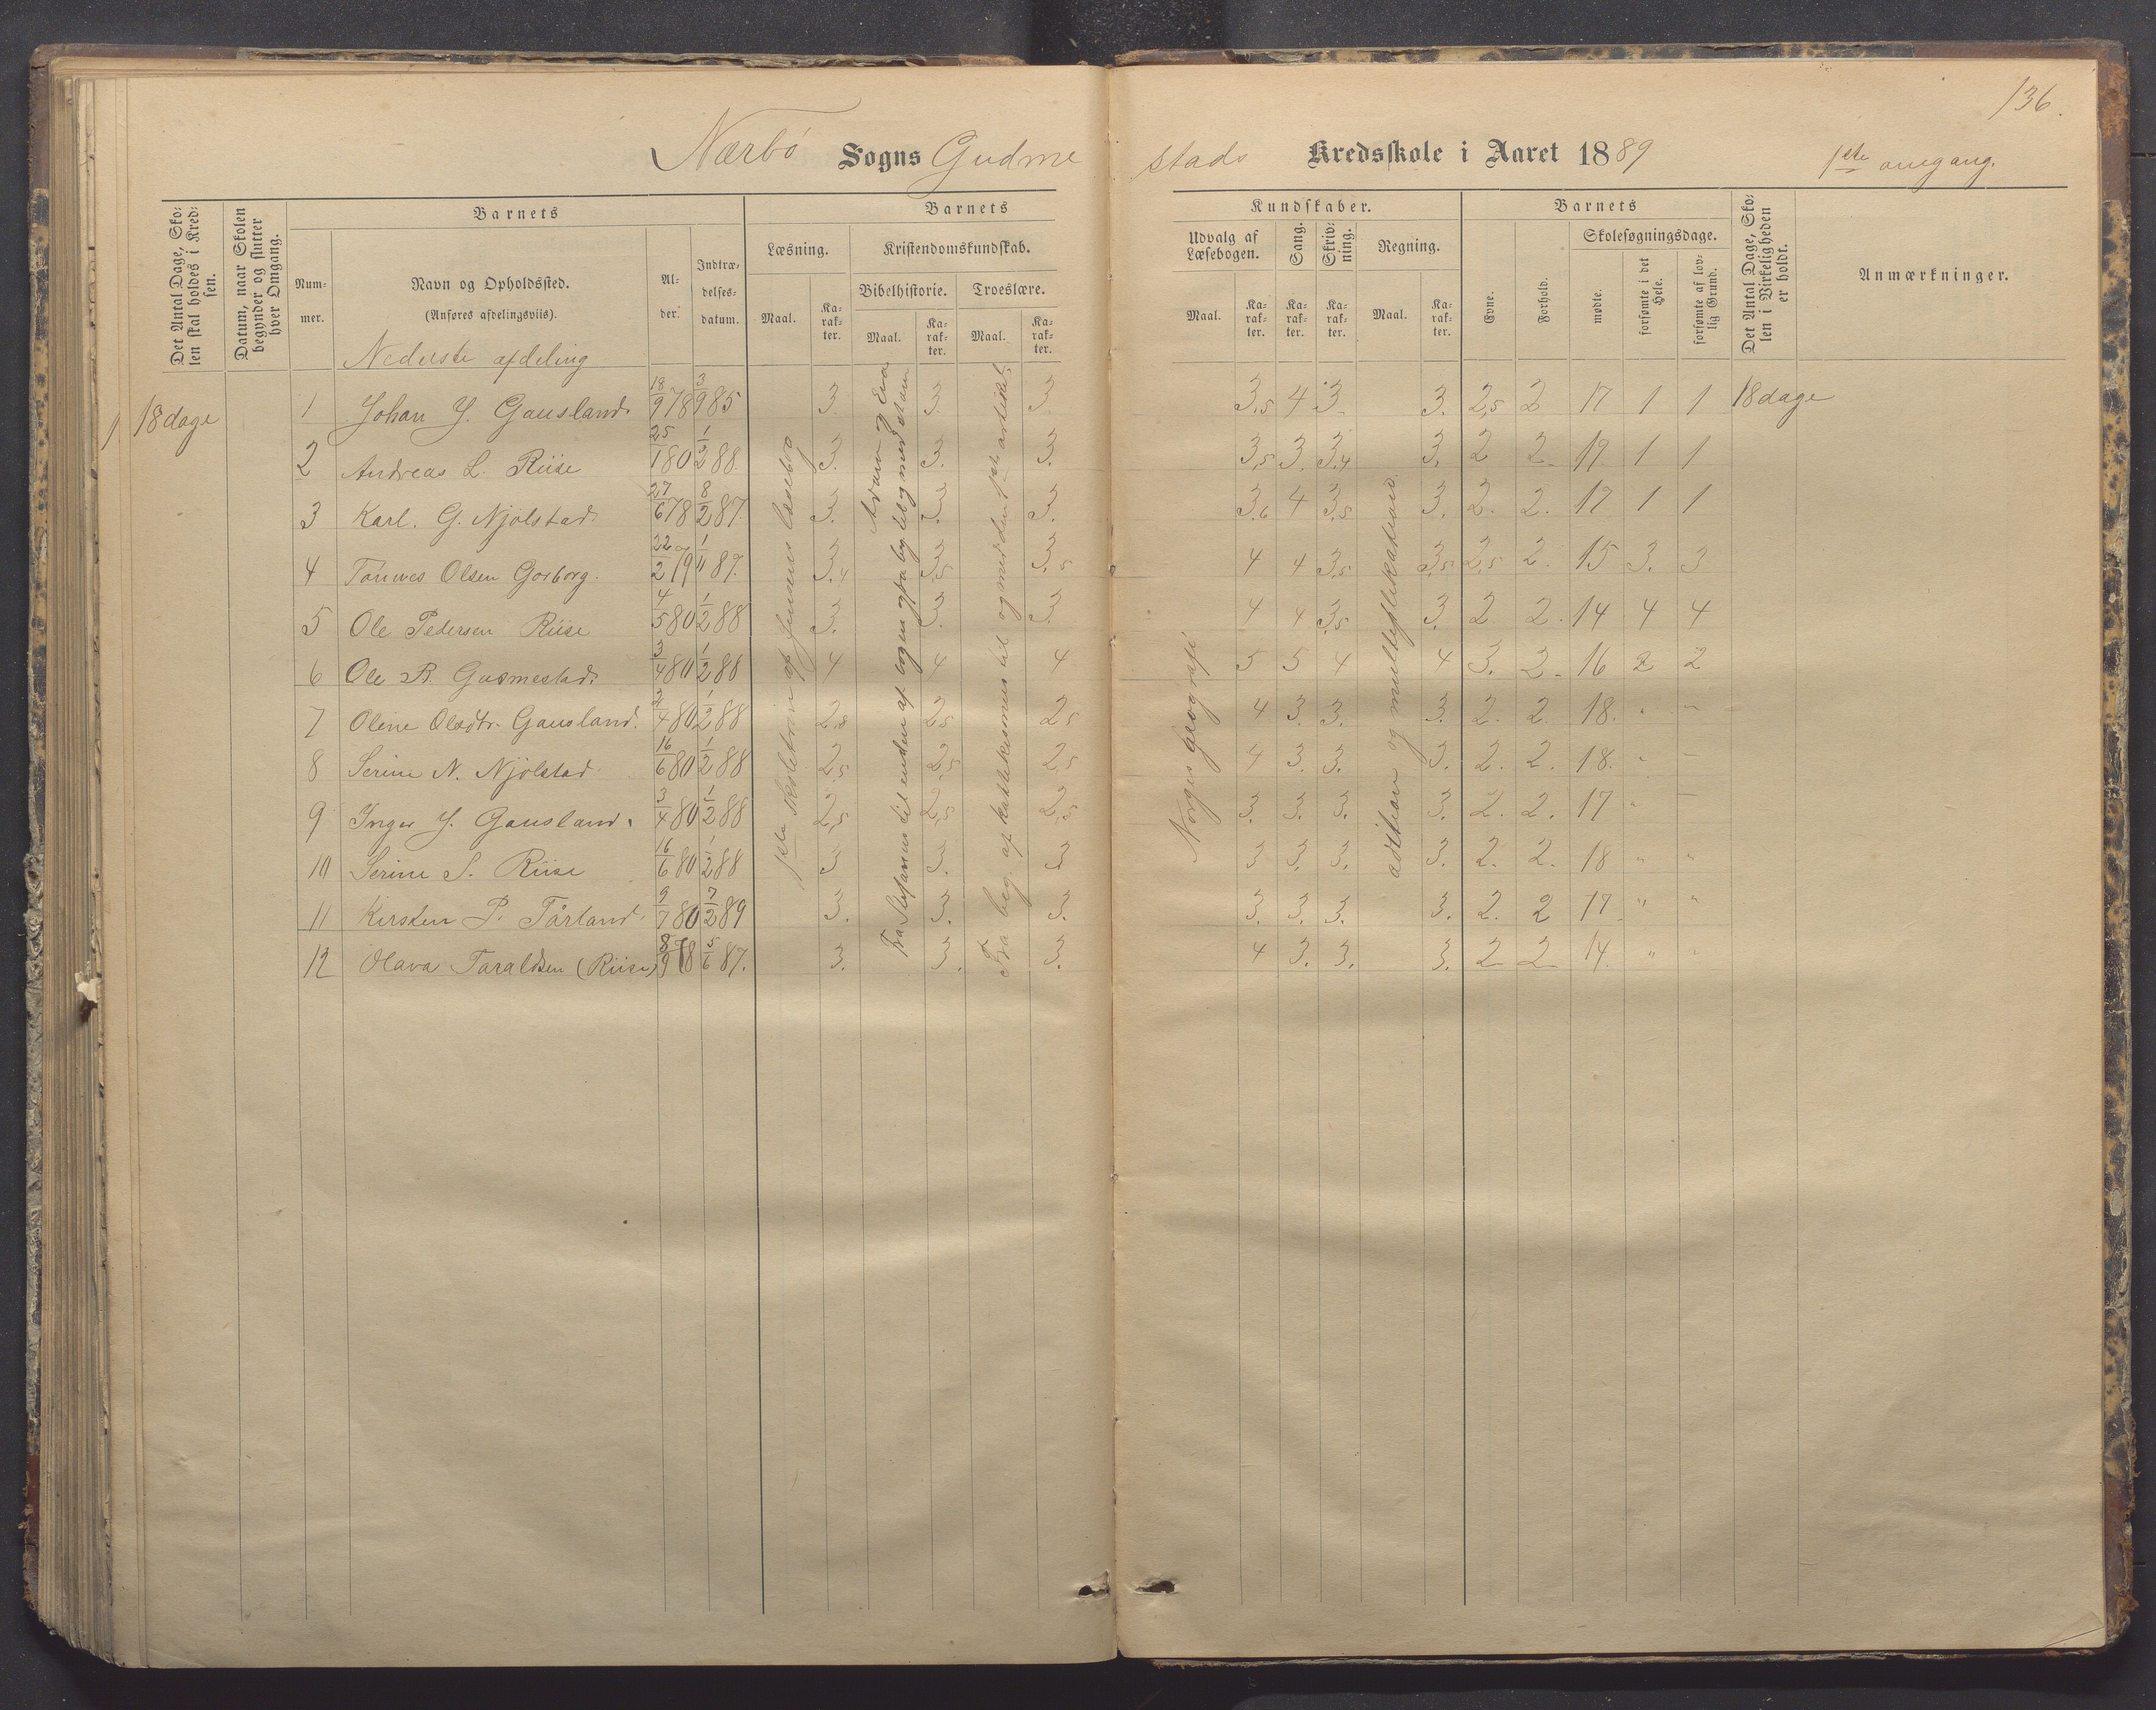 136.
Nærbö Sogns Gudmestads Kredsskole i Aaret 1889 1ste omgang.
Det Antal Dage, Skolen skal holdes i Kredsen.
Datum, naar Skolen begynder og slutter hver Omgang.
Barnets
Num-mer.
Navn og Opholdssted.
(Anføres afdelingsviis).
Al-der.
Indtræ-delses-datum.
Barnets Kundskaber.
Læsning.
Maal. Ka-rak-ter.
Kristendomskundskab.
Bibelhistorie. Troeslære.
Maal. Ka-rak-ter. Maal. Ka-rak-ter.
Udvalg af Læsebogen.
Maal. Ka-rak-ter.
Sang. Ka-rak-ter.
Skriv-ning. Ka-rak-ter.
Regning.
Maal. Ka-rak-ter.
Barnets
Evne. Forhold.
Skolesøgningsdage.
mødte. forsømte i det Hele. forsømte af lov-lig Grund.
Det Antal Dage, Sko-len i Virkeligheden er holdt.
Anmærkninger.
Nederste afdeling
1 18 dage 1 Johan J. Gausland. 18/9 78 3/9 85 3. 3. 3 3,5 4 3 3. 2,5 2 17 1 1 18 dage
2 Andreas L. Riise 25/1 80 1/2 88. 3. 3. 3. 3,5 3. 3,4 3. 2 2. 17 1 1
3 Karl. G. Njölstad. 27/6 78 8/2 87. 3. 3. 3. 3,6 4 3,5 3. 2. 2. 17 1 1
4 Tönnes Olsen Gorborg. 22/2 79 1/11 87. 3,4 3,5 3,5 4 4 3,5 3,5 2,5 2. 15 3. 3
5 Ole Pedersen Riise 4/5 80 1/2 88 3. 3. 3. 4 4 3,5 3. 2 2. 14 4 4
6 Ole B. Gudmestad. 3/4 80 1/2 88 4 4 4 5 5 4 4 3. 2. 16 2 2
7 Oline Olsdtr. Gausland. 3/4 80 1/2 88 2,8 2,5 2,5 4 3. 3. 3. 2. 2. 18. " "
8 Serine N. Njölstad 16/6 80 1/2 88 2,5 2,5 2,5 4 3. 3. 3. 2. 2. 18. " "
9 Inger J. Gausland. 3/4 80 1/2 88 2,5 2,5 2,5 3. 3. 3. 3. 2. 2. 17 " "
10 Serine S. Riise 16/6 80 1/2 88 3 3. 3 3 3. 3. 3. 2. 2. 18 " "
11 Kirsten P. Tårland. 9/7 80 7/2 89 3. 3. 3. 3. 3. 3. 3. 2. 2 17. " "
12 Olava Taraldsen (Riise) 8/9 78 5/6 87. 3. 3. 3. 4 3. 3. 3. 2 2 14. " "
1ste skoletrin af Jensens læsebog
Fra Stefanus til enden af bogen og fra beg. til og med Adam og Eva
Fra beg. af katekismus til og med den 1ste artikel.
Norges geografi
adition og multiplikation.